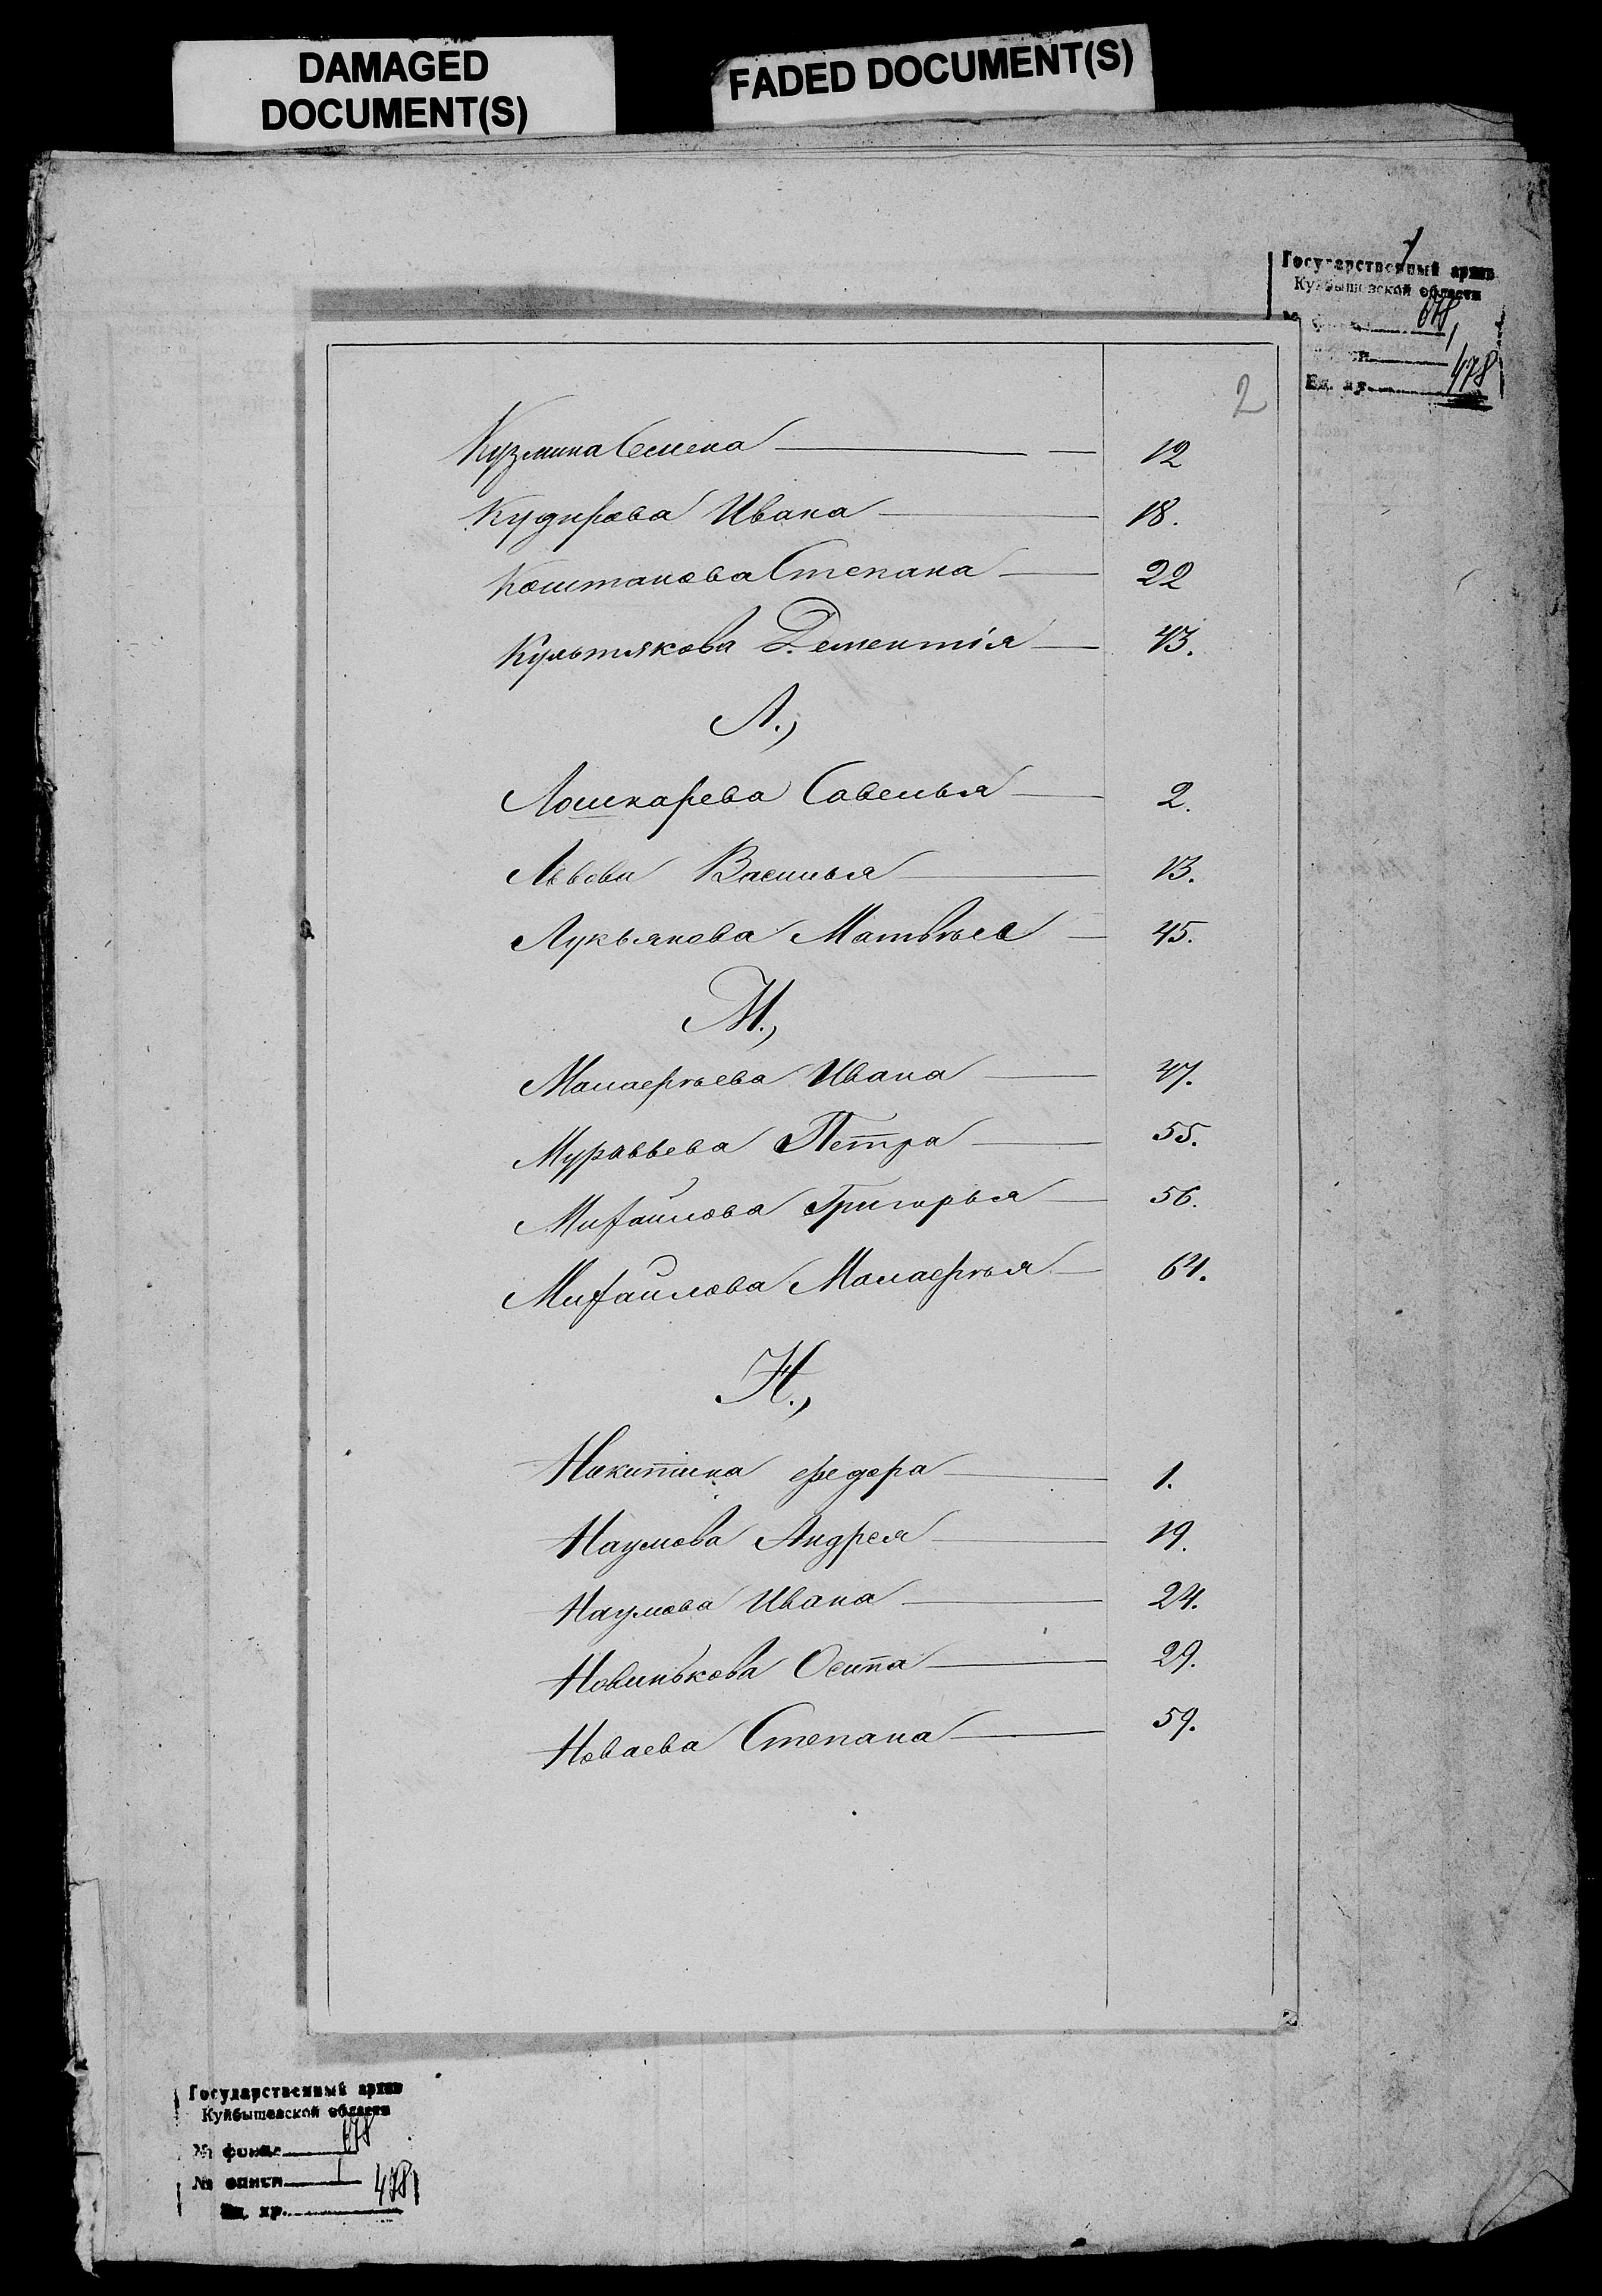 DAMAGED
DOCUMENT(S)
FADED DOCUMENT(S)
Государственный архив
Куйбышевской области
678
1
478
Ед. хр.
2
Кузмина Семена 12
Кудирова Ивана 18.
Коштанова Степана 22
Культякова Дементія 43.
Л.,
Лошкарева Савелья 2.
Львова Василья 13.
Лукьянова Матвѣя 45.
М.,
Малаерѣева Ивана 47.
Муравьева Петра 55.
Михайлова Григорья 56.
Михайлова Малаерѣя 64.
Н.,
Никитина Федора 1.
Наумова Андрея 19.
Наумова Ивана 24.
Новинькова Осипа 29.
Новаева Степана 59.
Государственный архив
Куйбышевской области
№ фонда 678
№ описи 1
Ед. хр. 478